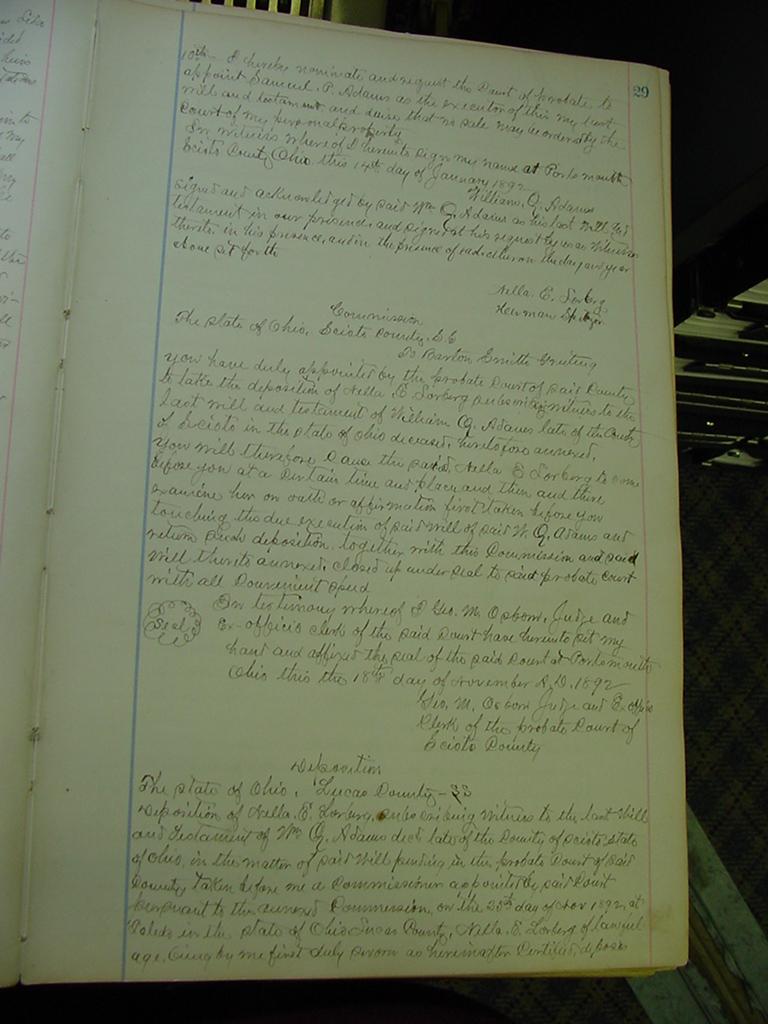 29
10th- I hereby nominate and request the Court of probate to
appoint Samuel. P. Adams as the executor of this my last
will and testament and desire that no sale may be ordered by the
Court of my personal property
In witness where of I hereunto sign my name at Portsmouth
Scioto County Ohio this 14th day of January 1892
William. Q. Adams
Signed and acknowledged by said Wm Q. Adams as his last Will and
testament in our presence and signed at his request by us as witnesses
thereto in his presence, and in the presence of each other on the day and year
above set forth
Nella. E. Sorberg.
Herman
Commission
The State of Ohio, Scioto County, S.S
To Barton Smith Greeting
You have duly appointed by the probate Court of said County
to take the deposition of Nella E Sorberg subscribing witness to the
last will and testament of William Q. Adams late of the County
of Scioto in the state of Ohio deceased, heretofore annexed.
You will therefore Cause the said Nella E Sorberg to come
before you at a Certain time and place and then and there
examine her on oath or affirmation first taken before you
touching the due execution of said will of said W. Q. Adams and
return such deposition together with this Commission and said
Will thereto annexed, closed up under seal to said probate court
with all Convenient speed
Seal
In testimony whereof I Geo. M. Osborn, Judge and
Ex-officio clerk of the said Court have hereunto set my
hand and affixed the seal of the said Court at Portsmouth
Ohio this the 18th day of November A.D. 1892
Geo. M. Osborn Judge and Ex officio
Clerk of the probate Court of
Scioto County
Deposition
The State of Ohio, Lucas County - SS
Deposition of Nella. E. Sorberg, subscribing Witness to the last Will
and Testament of Wm Q. Adams decd late of the County of Scioto State
of Ohio, in the matter of said Will pending in the probate Court of said
County, taken before me a Commissioner appointed by said Court
pursuant to the annexed Commission, on the 25th day of Nov 1892, at
Toledo in the State of Ohio Lucas County, Nella. E. Sorberg of lawful
age, being by me first duly sworn as hereinafter Certified, deposes